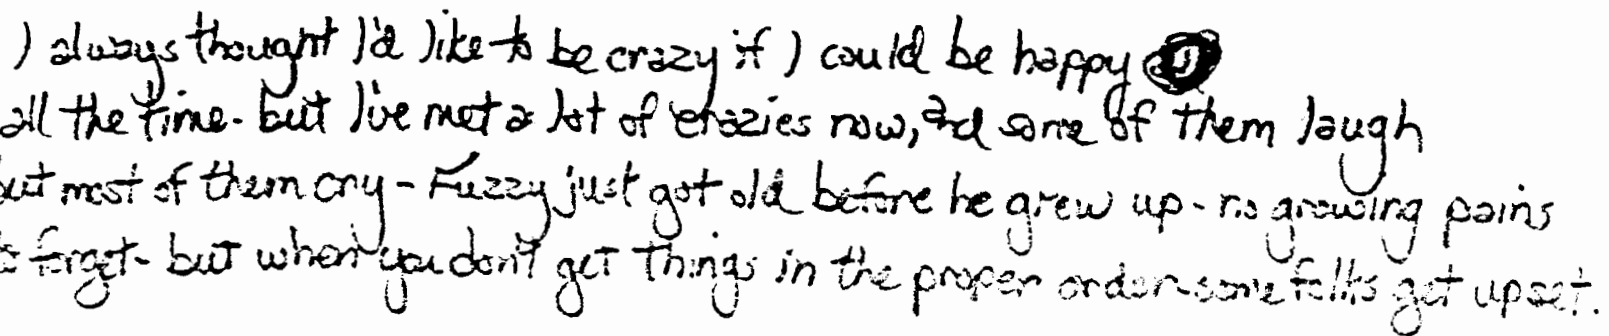 I always thought I'd like to be crazy if I could be happy
all the time - but I've met a lot of crazies now, and some of them laugh
but most of them cry - Fuzzy just got old before he grew up - no growing pains
to forget - but when you don't get things in the proper order - some folks get upset.